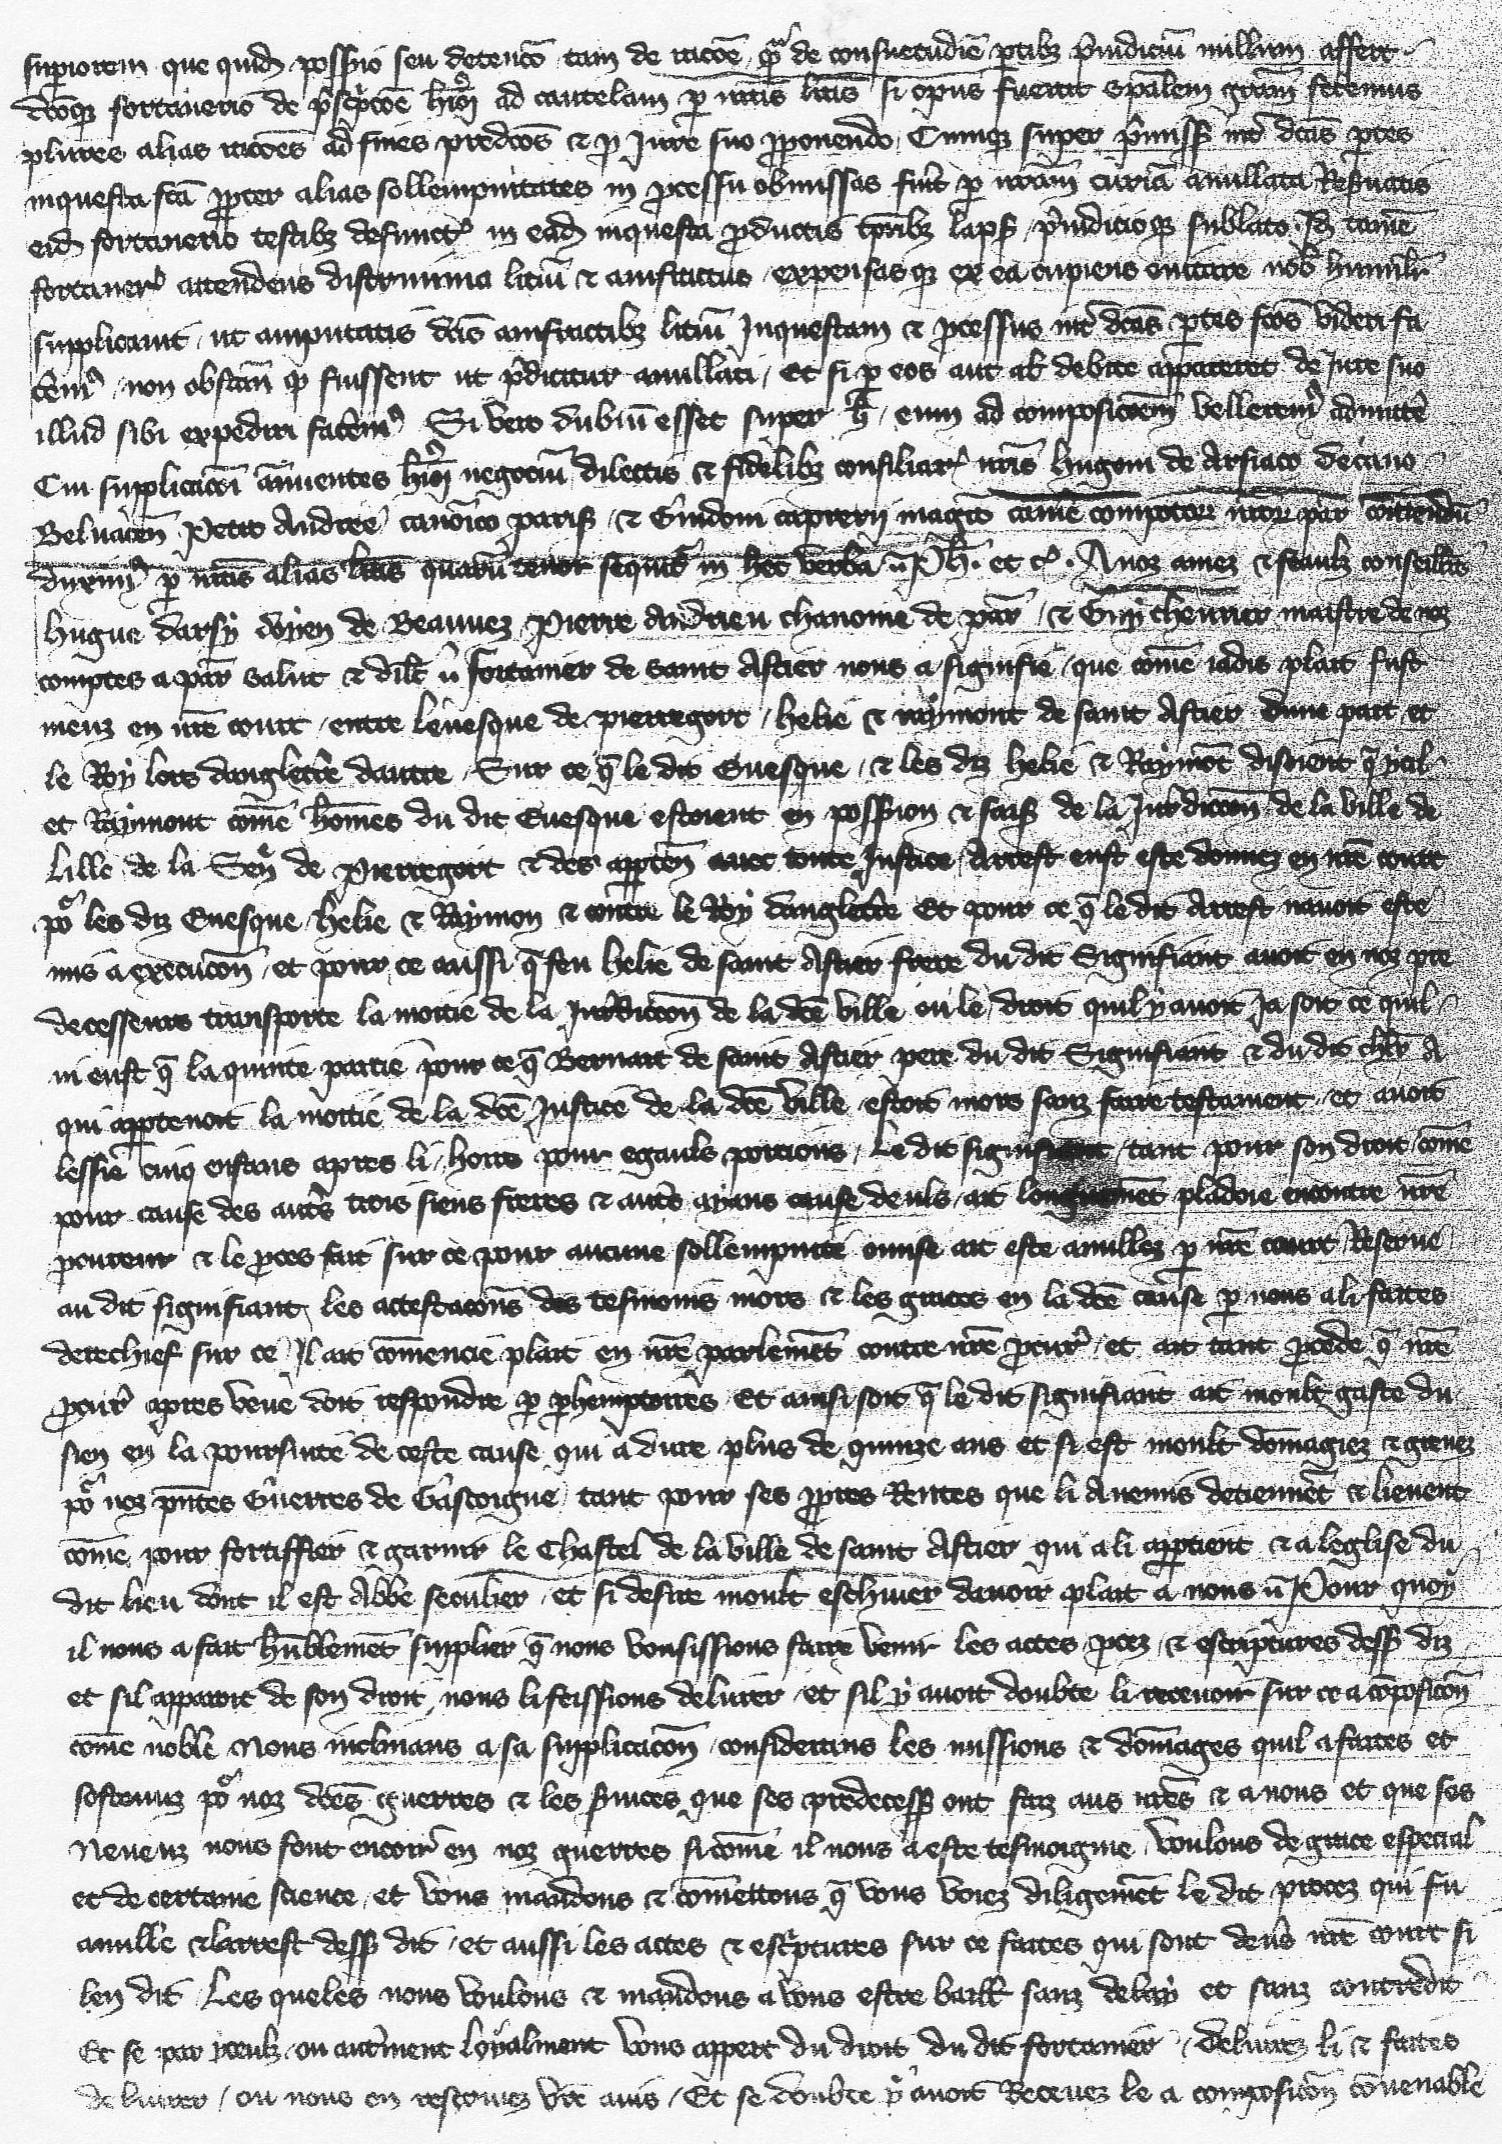 supiorem que quid possio seu detencõ tam de racõe qª de consuetudie ptibz piudiciu nullum affert
dcõqz fortanerio de pscpcõe hui ad cautelam p nras litas si opus fuerat spalem gram fecimus
plures alias racões ad fines predcõs & p Jure suo pponendo Cumqz super pmiss int dcas ptes
inquesta fca ppter alias sollempnitates in pcessu obmissas fuit p nram curia anullata Resuatis
eid fortanerio testibz defunct in ead inquesta pductis tpribz laps piudicioqz sublato Id tame
fortaner attendens discrimina litiu & amfractus expensasqz ex ea cupiens euitare nob humilr
supplicauit ut amputatis dcis amfractibz litiu Inquestam & pcessus int dcas ptes fcos videri fa
cem non obstan qz fuissent ut pdicitur anullati Et si p eos aut al debite appareret de Jure suo
illud sibi expediri facem Si vero dubiu esset super h eum ad composicõem vellerem admitte
Cui supplicacõi annuentes hui negociu dilectis & fidelibz consiliar nris hugoni de Arsiaco decano
Beluacen Petro Andree canonico paris & Guidoni caprerii magro camere compotor nror par comittendu
duxim p nras alias litas quaru tenor sequit in hec verba Ph et c A noz amez & feaulz conseillrs
hugue darsy doyen de Beauuez Pierre Andrieu chanoine de par & Guy cheurier maistre de noz
comptes a par salut & dilc fortanier de saint Astier nous a signifie que come iadis plait fust
meuz en nre court entre leuesque de pierregort helie & raymont de saint Astier dune part et
le Roy lors dangleterre dautre Sur ce q le dit Euesque & les diz helie & Raymot disoient q ycil
et Raymont come homes du dit Euesque estoient en possion & sais de la Jurdiccon de la ville de
Lille de la Sen de Pierregort & des apparten auec toute Justice Arrest eust este donnez en nre court
po les diz Euesque helie & Raymon & contre le Roy dangleterre Et pour ce q le dit Arrest nauoit este
mis a execucon et pour ce aussi q feu helie de saint Astier frere du dit Signifiant auoit en noz pre
decesseurs transporte la moitie de la Jurdiccon de la dce ville ou le droit quil y auoit Ja soit ce quil
ni eust q la quinte partie pour ce q Bernart de saint Astier pere du dit Signifiant & du dit chlr A
qui apptenoit la moitie de la dce Justice de la dce ville estoit mors sanz faire testament et auoit
lessie cinq enfans apres li hoirs pour egauls porcions Le dit signifiant tant pour son droit come
pour cause des autrs trois siens freres & autrs ayans cause deuls ait longuemet pladoie encontre nre
pcureur & le pces fait sur ce pour aucune sollempnite omise ait este anullez p nre court Reserue
au dit signifiant les attestacons des tesmoins mors & les graces en la dce cause p nous a li faites
derechief sur ce Il ait comencie plait en nre parlemet contre nre pcur et ait tant pcede q nre
pcur apres veue doit respondre p phemptoires Et ainsi soit q le dit signifiant ait moult gaste du
sien en la poursuite de ceste cause qui a dure plus de quinze ans et si est moult domagiez & greuez
po noz pntes Guerres de Gascoigne tant pour ses ppres Rentes que li Anemis detiennet & lieuent
come pour fortiffier & garnir le Chastel de la ville de saint Astier qui a li apptient & a leglise du
dit lieu dont il est Abbe seculier et si desire moult eschiuer dauoir plait a nous Pour quoy
il nous a fait humblemet supplier q nous vousissions faire venir les actes pcez & escriptures dess diz
et sil apparoit de son droit nous li feissions deliurer et sil y auoit doubte li receuoir sur ce a composicon
come noble Nous inclinans a sa supplicacon considerans les missions & domages quil a faites et
sostenuz po noz dces guerres & les seruices que ses predecess ont faiz aus nres & a nous et que ses
Neueuz nous font encor en noz guerres si come il nous a este tesmoigne voulons de grace especial
et de certaine science et vous mandons & comettons q vous voiez diligemet le dit procez qui fu
anulle & larrest dess dit et aussi les actes & escptures sur ce faites qui sont deuers nre court si
len dit Les queles nous voulons & mandons a vous estre baill sanz delay et sanz contredit
Et se par yceulz ou autrment loyalment vous appert du droit du dit fortanier deliurez li & faites
deliurer ou nous en rescriuez vre auis Et se doubte y auoit Receuez le a composicon couenable